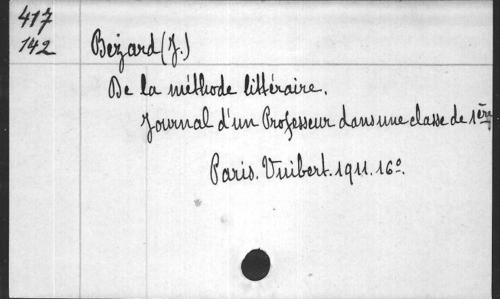 417
142 Bezard (J.)
De la méthode littéraire.
Journal d'un Professeur dans une classe de 1ère
Paris. Vuibert. 1911. 16º.